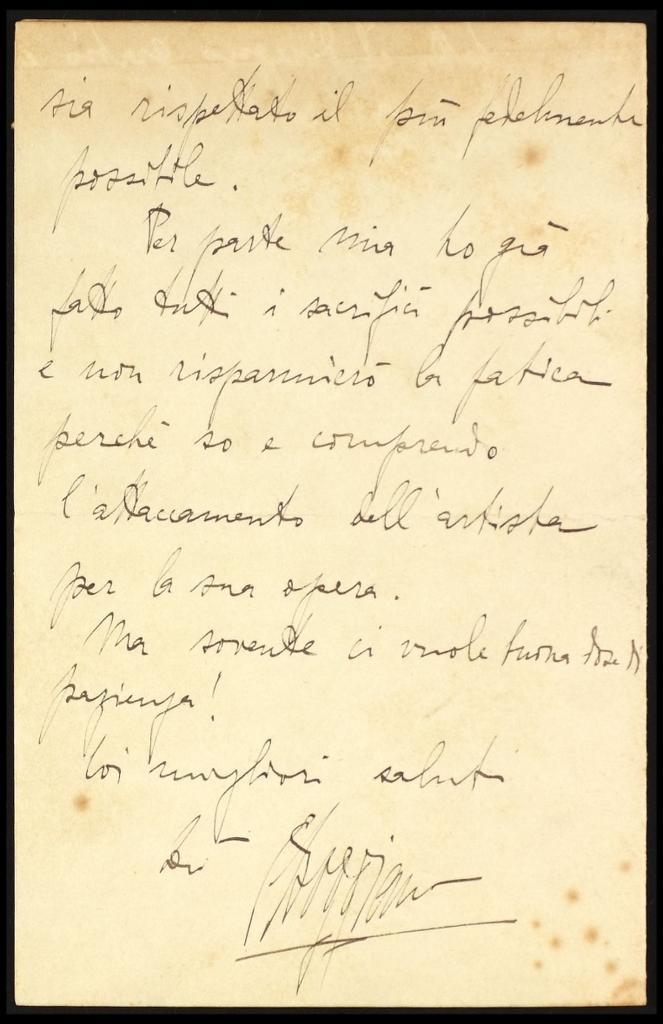 sia rispettato il più fedelmente
possibile.
Per parte mia ho già
fatto tutti i sacrifici possibili
e non risparmierò la fatica
perchè so e comprendo
l'attaccamento dell'artista
per la sua opera.
Ma sovente ci vuole buona dose di
pazienza!
Coi migliori saluti